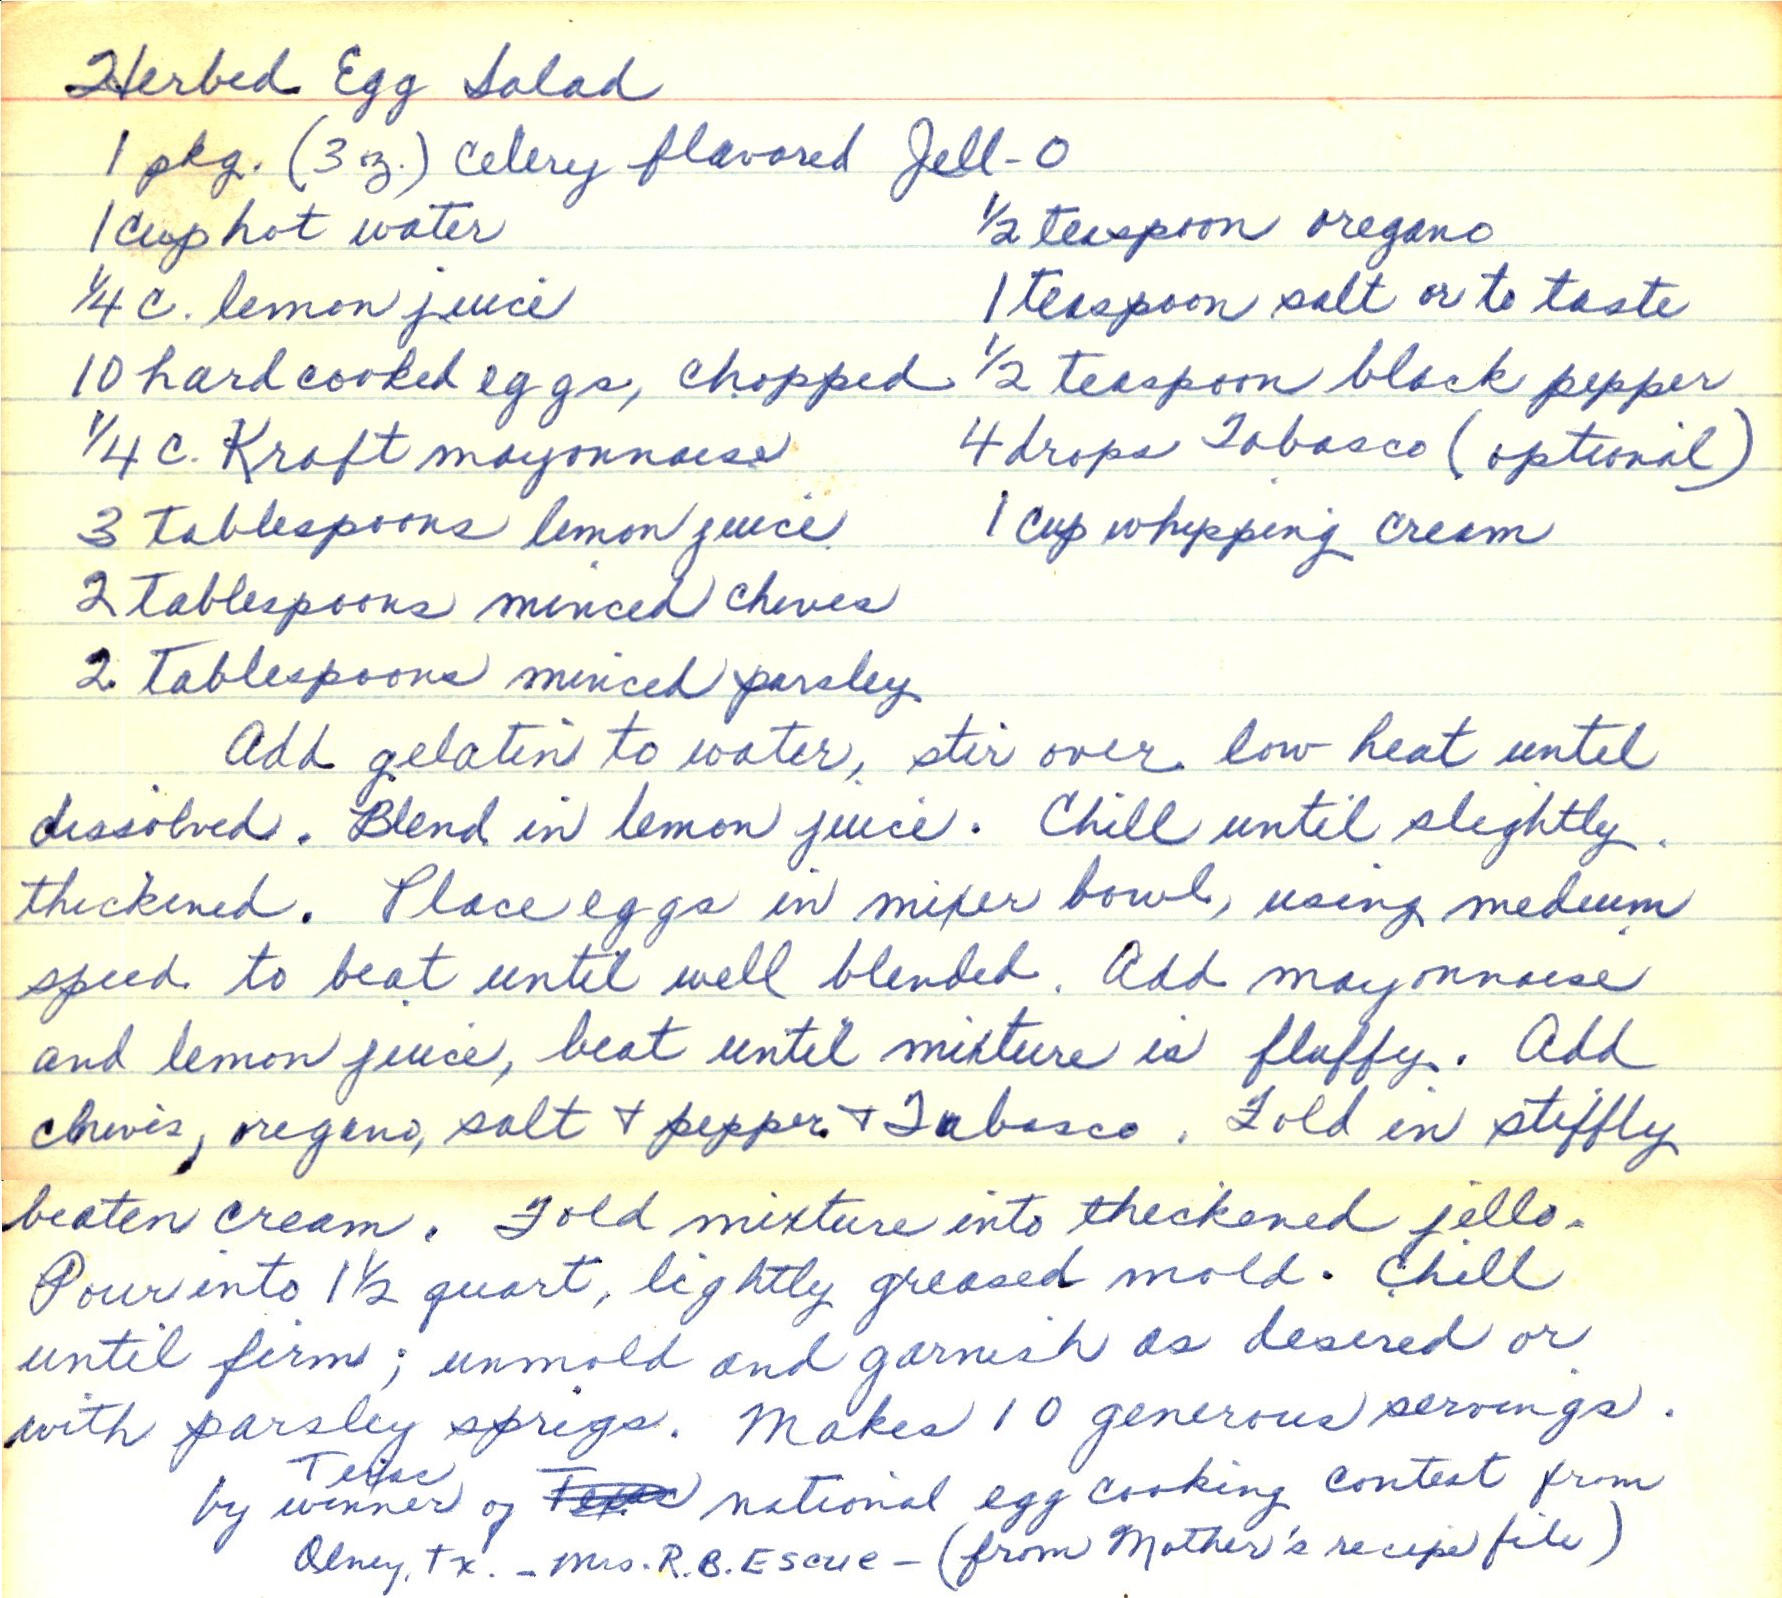 Herbed Egg Salad
1 pkg. (3 oz.) celery flavored Jell-O
1 cup hot water
1/4 c. lemon juice
10 hard cooked eggs, chopped
1/4 c. Kraft mayonnaise
3 tablespoons lemon juice
2 tablespoons minced chives
2 tablespoons minced parsley
1/2 teaspoon oregano
1 teaspoon salt or to taste
1/2 teaspoon black pepper
4 drops Tabasco (optional)
1 cup whipping cream
Add gelatin to water, stir over low heat until
dissolved. Blend in lemon juice. Chill until slightly
thickened. Place eggs in mixer bowl, using medium
speed to beat until well blended. Add mayonnaise
and lemon juice, beat until mixture is fluffy. Add
chives, oregano, salt & pepper & Tabasco. Fold in stiffly
beaten cream. Fold mixture into thickened jello.
Pour into 1 1/2 quart, lightly greased mold. Chill
until firm; unmold and garnish as desired or
with parsley sprigs. Makes 10 generous servings.
Texas
by winner of national egg cooking contest from
Olney, Tx. - Mrs. R.B. Escue - (from Mother's recipe file)